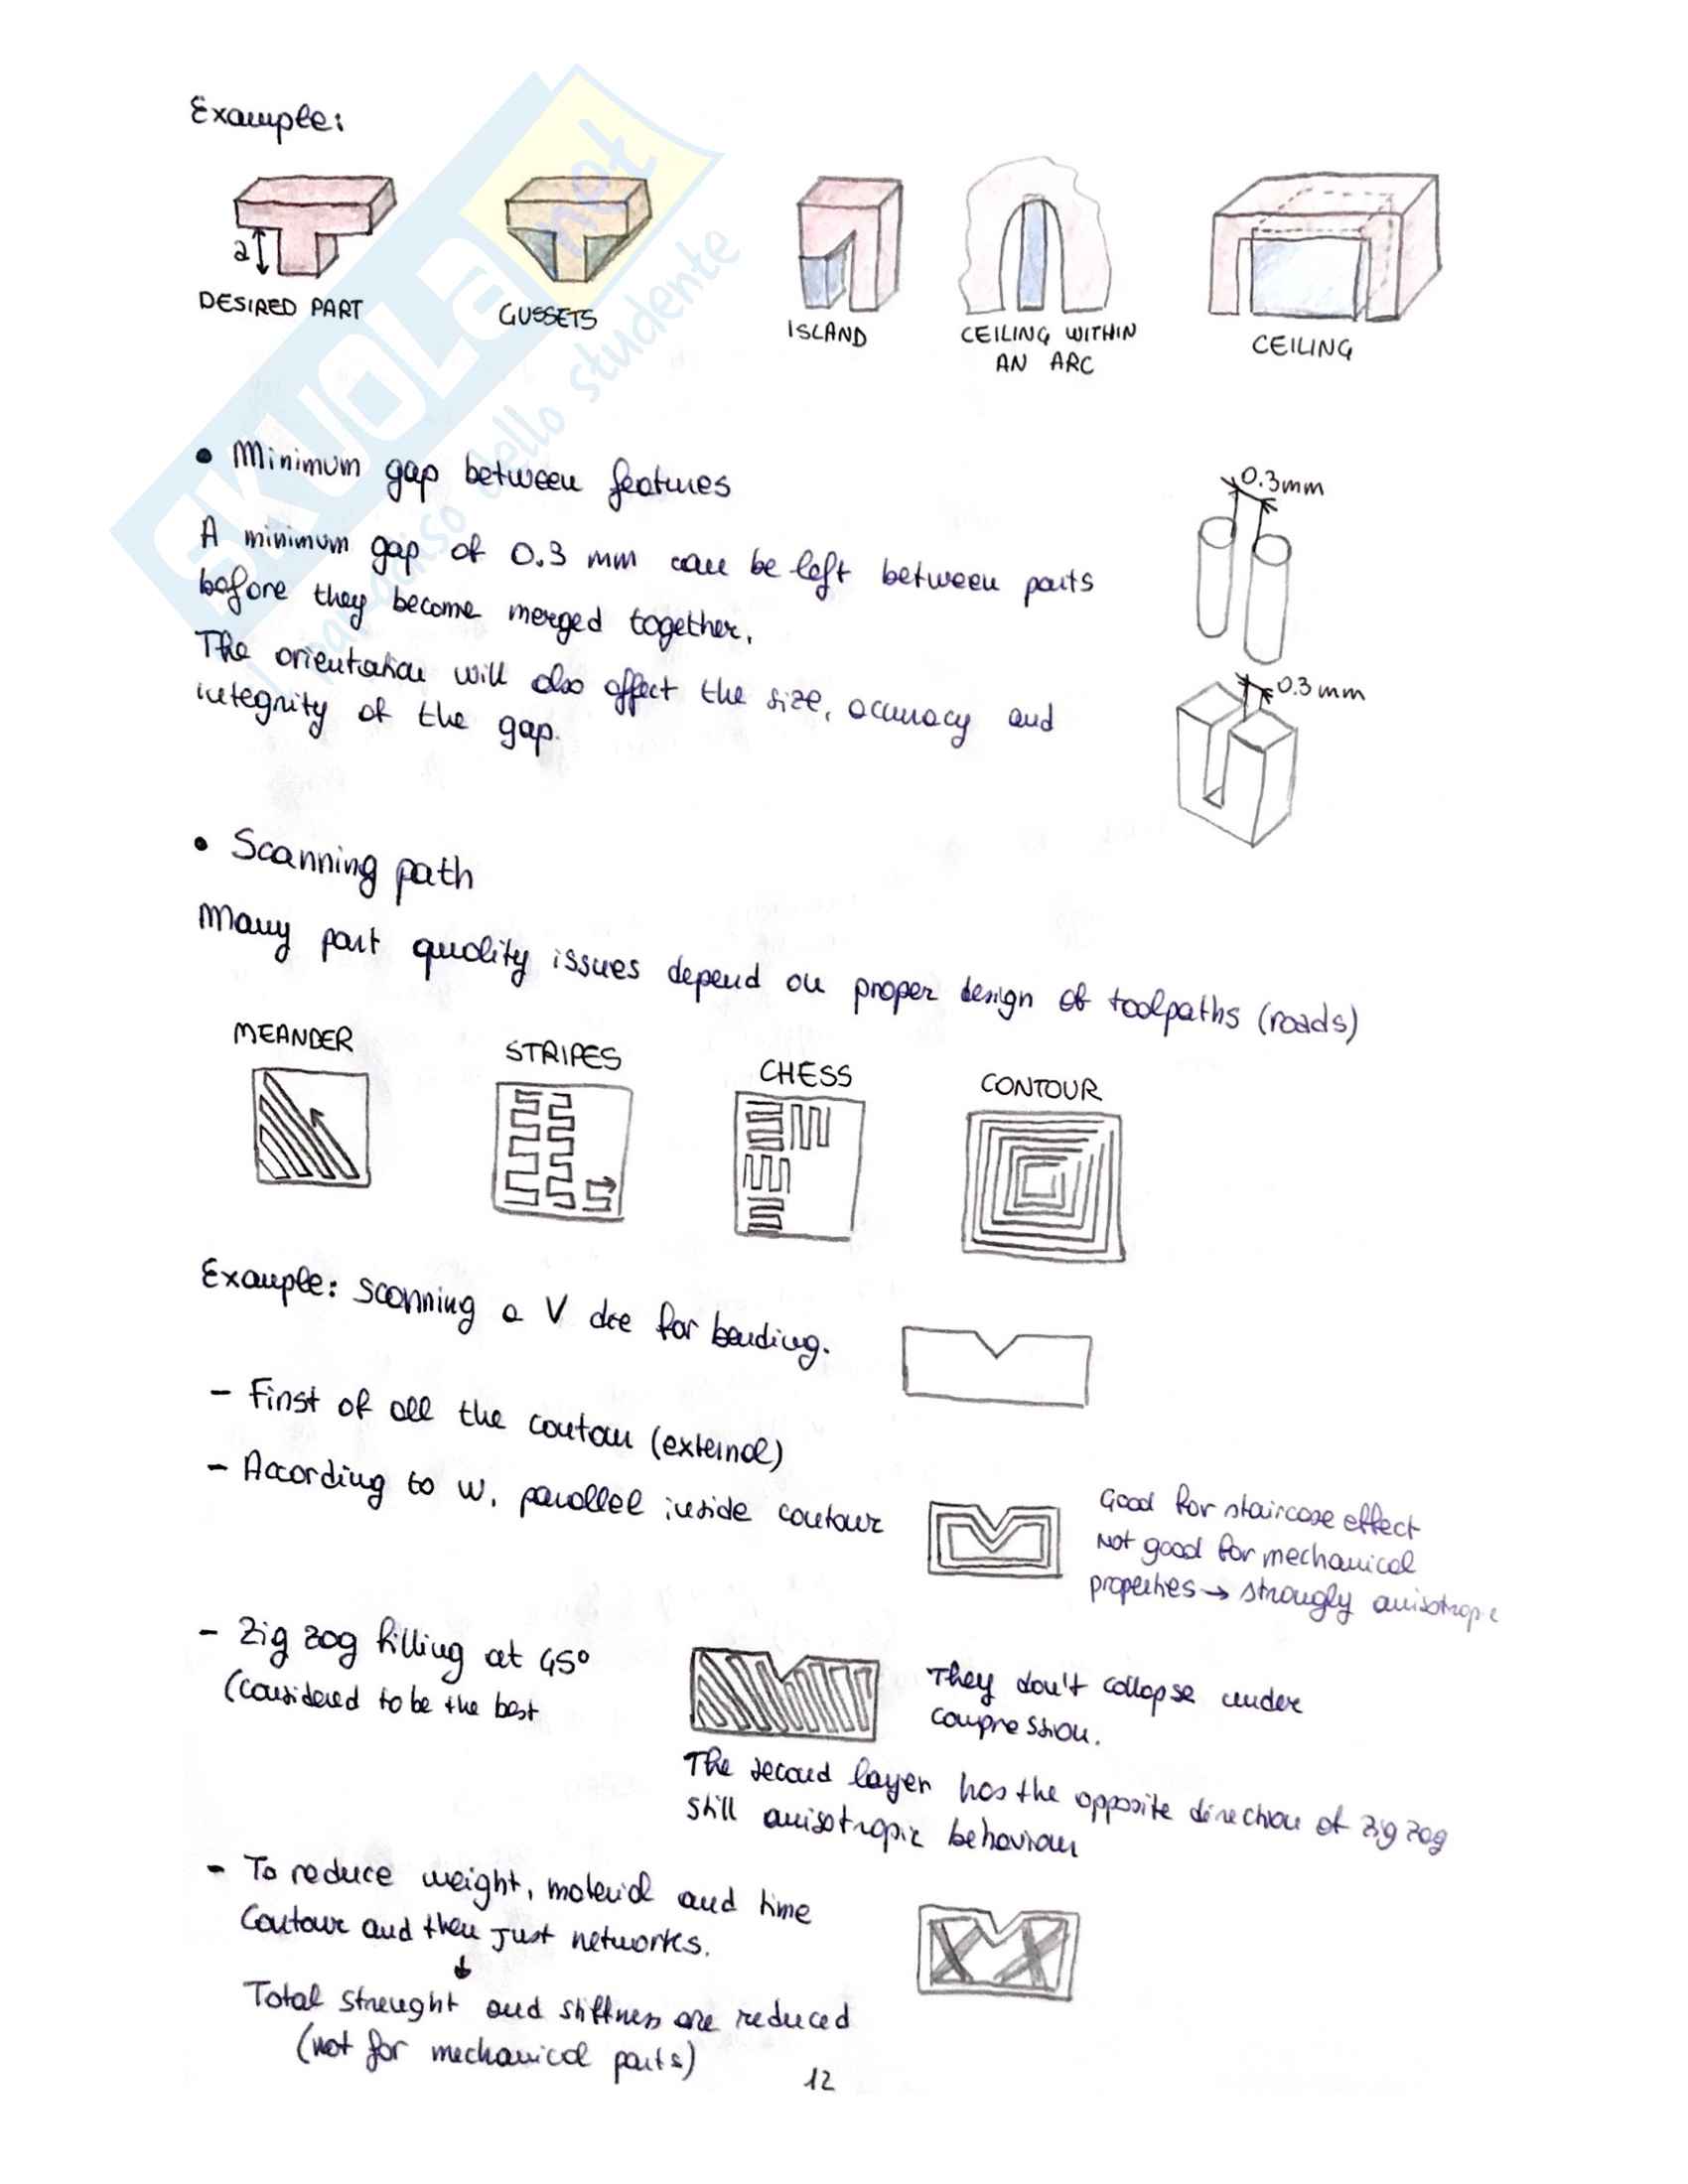 Example:
a
DESIRED PART
GUSSETS
ISLAND
CEILING WITHIN
AN ARC
CEILING
SKUOLA.net
il paradiso dello studente
• Minimum gap between features
0.3mm
A minimum gap of 0.3 mm can be left between parts
before they become merged together.
The orientation will also affect the size, accuracy and
integrity of the gap.
0.3 mm
• Scanning path
Many part quality issues depend on proper design of toolpaths (roads)
MEANDER
STRIPES
CHESS
CONTOUR
Example: scanning a V die for bending.
- First of all the contour (external)
- According to w, parallel inside contour
Good for staircase effect
Not good for mechanical
properties → strongly anisotropic
- Zig zag filling at 45°
(considered to be the best
They don't collapse under
compression.
The second layer has the opposite direction of zig zag
still anisotropic behaviour
- To reduce weight, material and time
Contour and then just networks.
↓
Total strenght and stiffness are reduced
(not for mechanical parts)
12